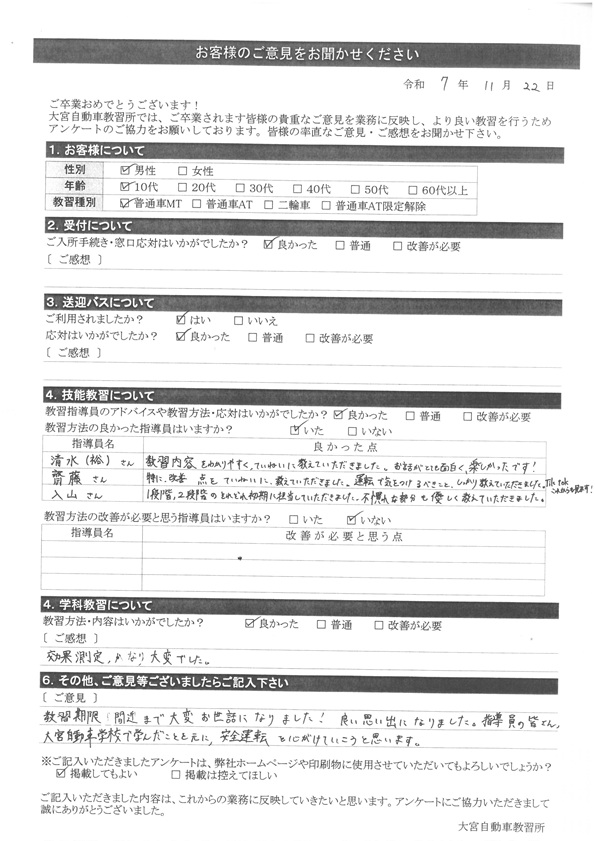 お客様のご意見をお聞かせください
令和 7 年 11 月 22 日
ご卒業おめでとうございます！
大宮自動車教習所では、ご卒業されます皆様の貴重なご意見を業務に反映し、より良い教習を行うため
アンケートのご協力をお願いしております。皆様の率直なご意見・ご感想をお聞かせ下さい。
1. お客様について
性別 ☑男性 □女性
年齢 ☑10代 □20代 □30代 □40代 □50代 □60代以上
教習種別 ☑普通車MT □普通車AT □二輪車 □普通車AT限定解除
2. 受付について
ご入所手続き・窓口応対はいかがでしたか？ ☑良かった □普通 □改善が必要
〔 ご感想 〕
3. 送迎バスについて
ご利用されましたか？ ☑はい □いいえ
応対はいかがでしたか？ ☑良かった □普通 □改善が必要
〔 ご感想 〕
4. 技能教習について
教習指導員のアドバイスや教習方法・応対はいかがでしたか？ ☑良かった □普通 □改善が必要
教習方法の良かった指導員はいますか？ ☑いた □いない
指導員名 良かった点
清水(裕)さん 教習内容をわかりやすく、ていねいに教えていただきました。お話がとても面白く、楽しかったです！
齋藤さん 特に、改善点をていねいに、教えていただきました。運転で気をつけるべきこと、しっかり教えていただきました。Tik tok これからも見ます！
入山さん 1段階,2段階のそれぞれ初期に担当していただきました。不慣れな部分も優しく教えていただきました。
教習方法の改善が必要と思う指導員はいますか？ □いた ☑いない
指導員名 改善が必要と思う点
4. 学科教習について
教習方法・内容はいかがでしたか？ ☑良かった □普通 □改善が必要
〔 ご感想 〕
効果測定,かなり大変でした。
6. その他、ご意見等ございましたらご記入下さい
〔 ご意見 〕
教習期限間近まで大変お世話になりました！ 良い思い出になりました。指導員の皆さん,
大宮自動車学校で学んだことを元に,安全運転を心がけていこうと思います。
※ご記入いただきましたアンケートは、弊社ホームページや印刷物に使用させていただいてもよろしいでしょうか？
☑掲載してもよい □掲載は控えてほしい
ご記入いただきました内容は、これからの業務に反映していきたいと思います。アンケートにご協力いただきまして
誠にありがとうございました。
大宮自動車教習所